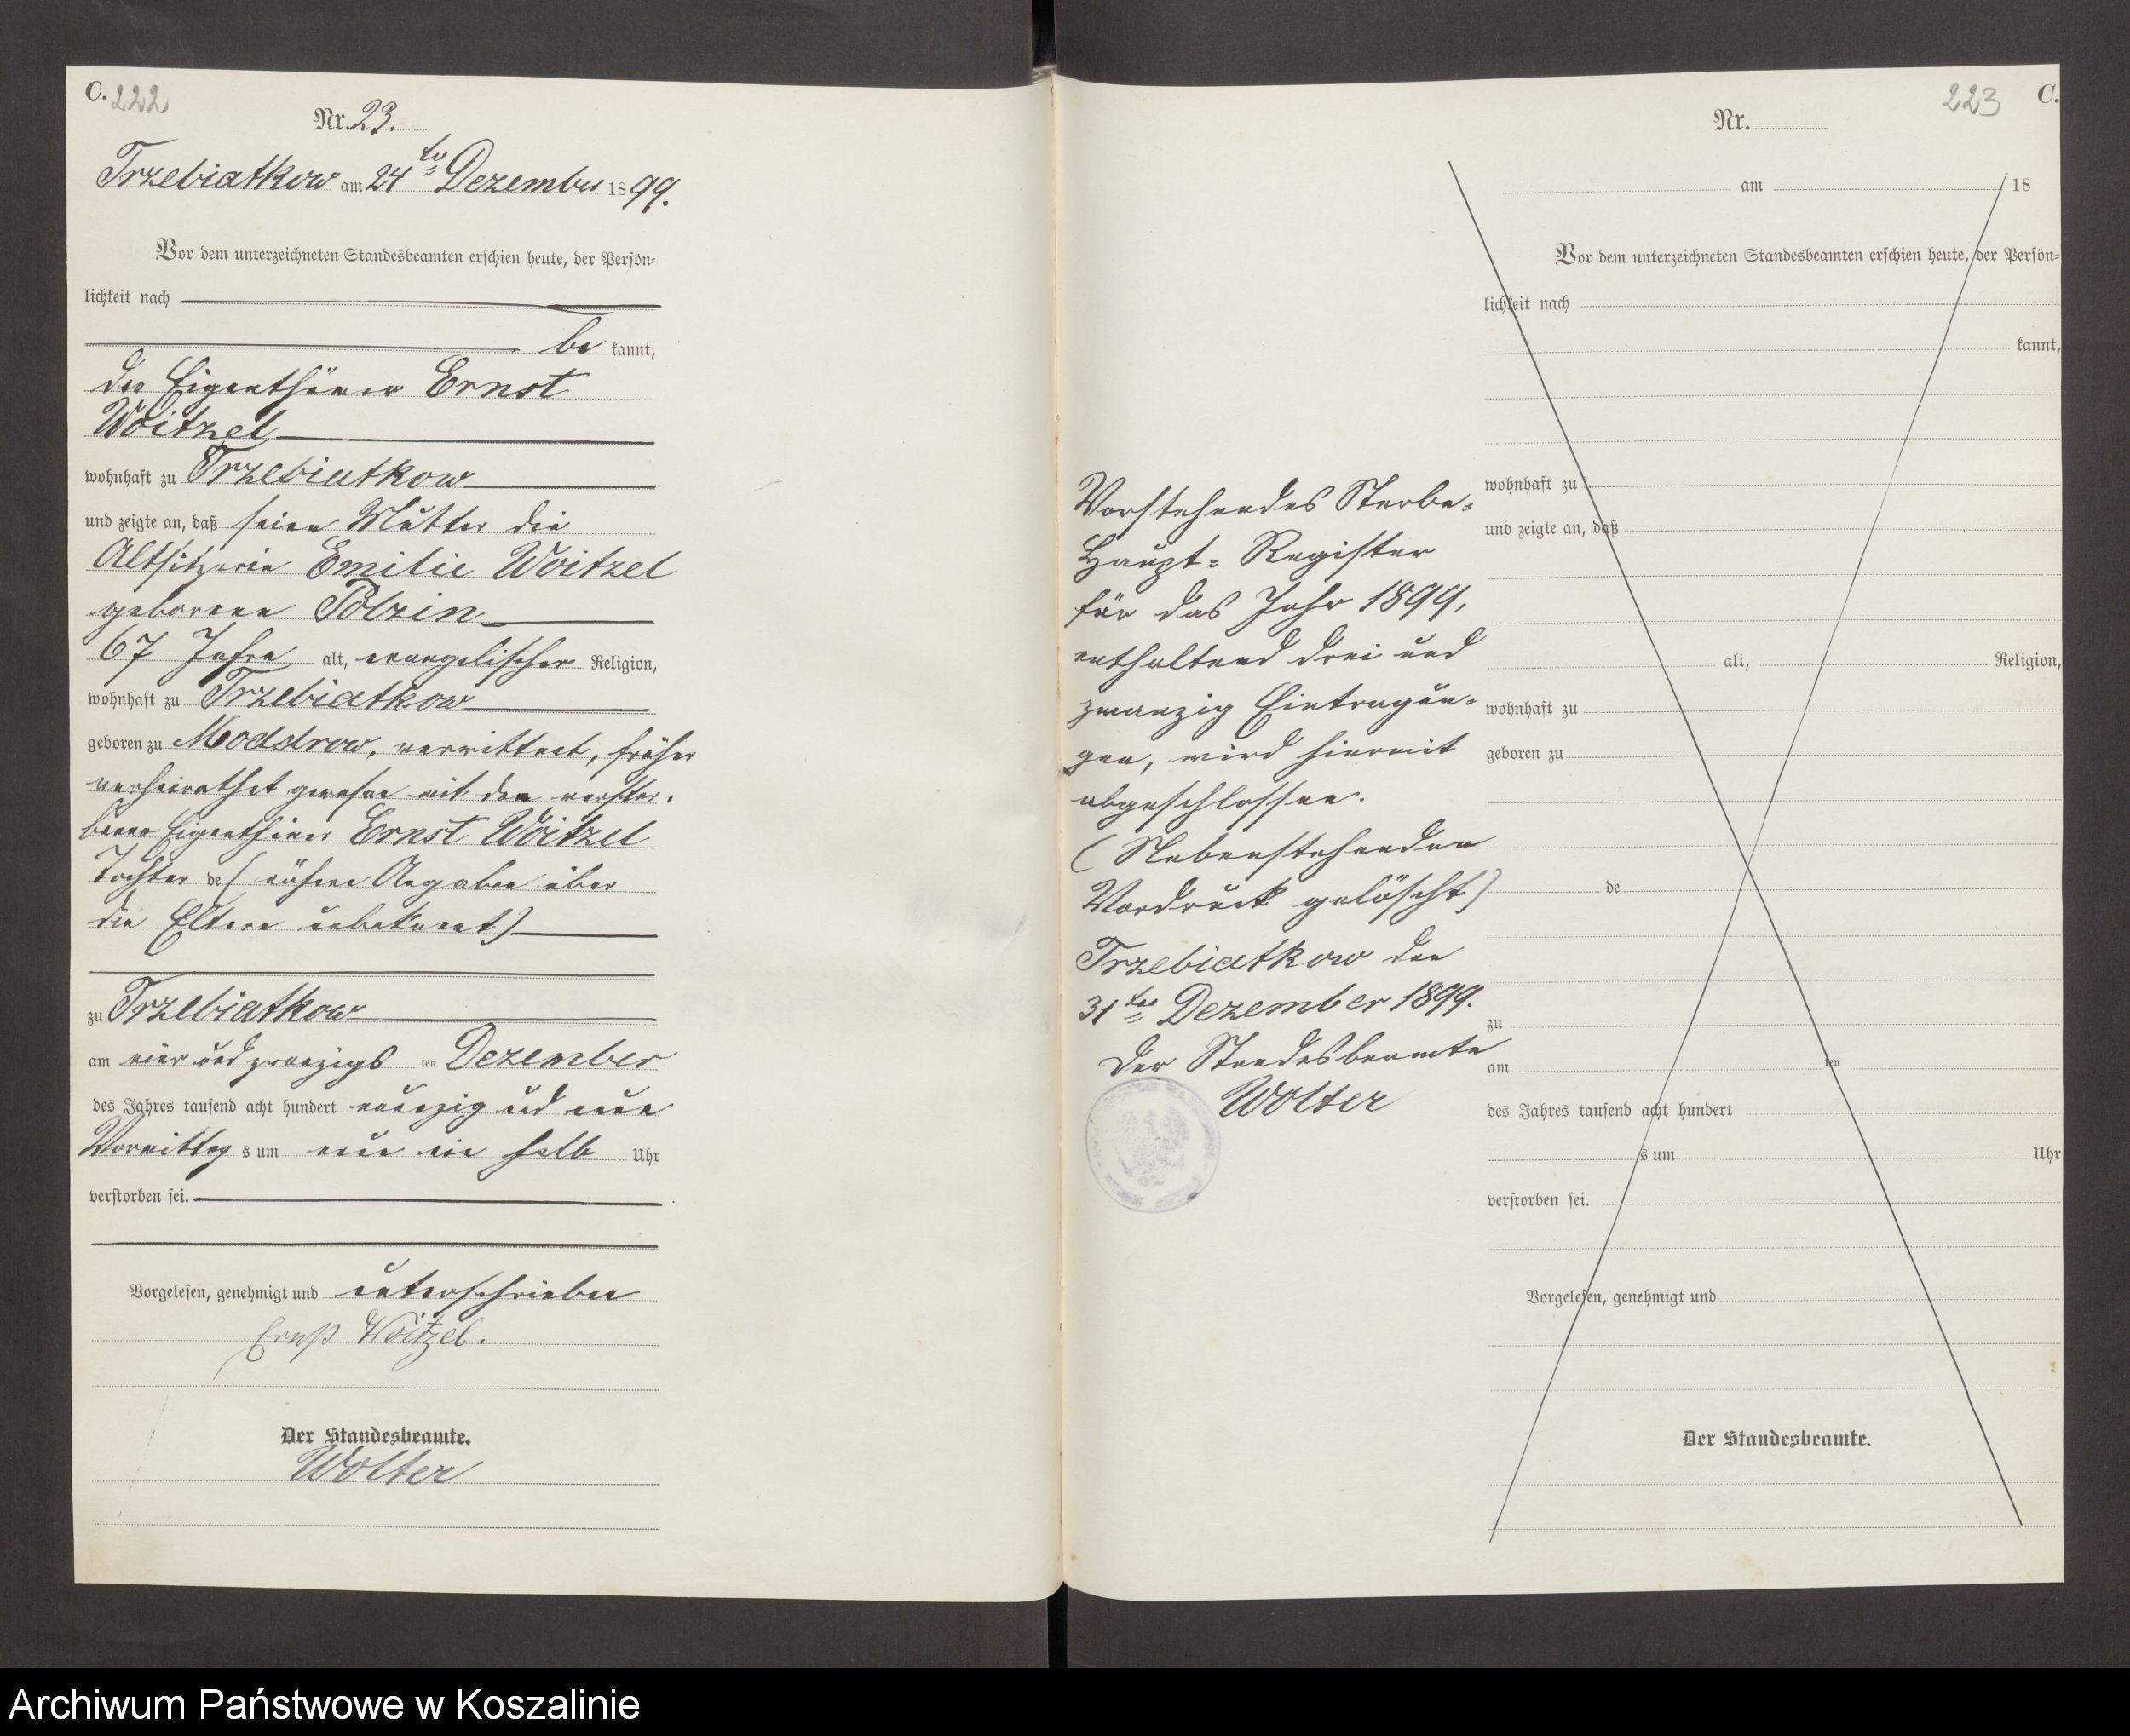 C. 222
Nr. 23.
Trzebiatkow am 24ten Dezember 1899.
Vor dem unterzeichneten Standesbeamten erschien heute, der Persön=
lichkeit nach
be kannt,
der Eigenthümer Ernst
Woitzel
wohnhaft zu Trzebiatkow
und zeigte an, daß seine Mutter die
Altsitzerin Emilie Woitzel
geborene Polzin
67 Jahre alt, evangelischer Religion,
wohnhaft zu Trzebiatkow
geboren zu Moddrow, verwittwet, früher
verheirathet gewesen mit dem verstor-
benen Eigenthümer Ernst Woitzel
Tochter de (nähere Angaben über
die Eltern unbekannt)
zu Trzebiatkow
am vier und zwanzigs ten Dezember
des Jahres tausend acht hundert neunzig und neun
Vormittag s um neun ein halb Uhr
verstorben sei.
Vorgelesen, genehmigt und unterschrieben
Ernst Woitzel.
Der Standesbeamte.
Wolter
Vorstehendes Sterbe=
Haupt=Register
für das Jahr 1899,
enthaltend drei und
zwanzig Eintragun=
gen, wird hiermit
abgeschlossen.
(Nebenstehenden
Vordruck gelöscht)
Trzebiatkow den
31ten Dezember 1899.
Der Standesbeamte
Wolter
223 C.
Nr.
am 18
Vor dem unterzeichneten Standesbeamten erschien heute, der Persön=
lichkeit nach
kannt,
wohnhaft zu
und zeigte an, daß
alt, Religion,
wohnhaft zu
geboren zu
de
zu
am ten
des Jahres tausend acht hundert
s um Uhr
verstorben sei.
Vorgelesen, genehmigt und
Der Standesbeamte.
Archiwum Państwowe w Koszalinie